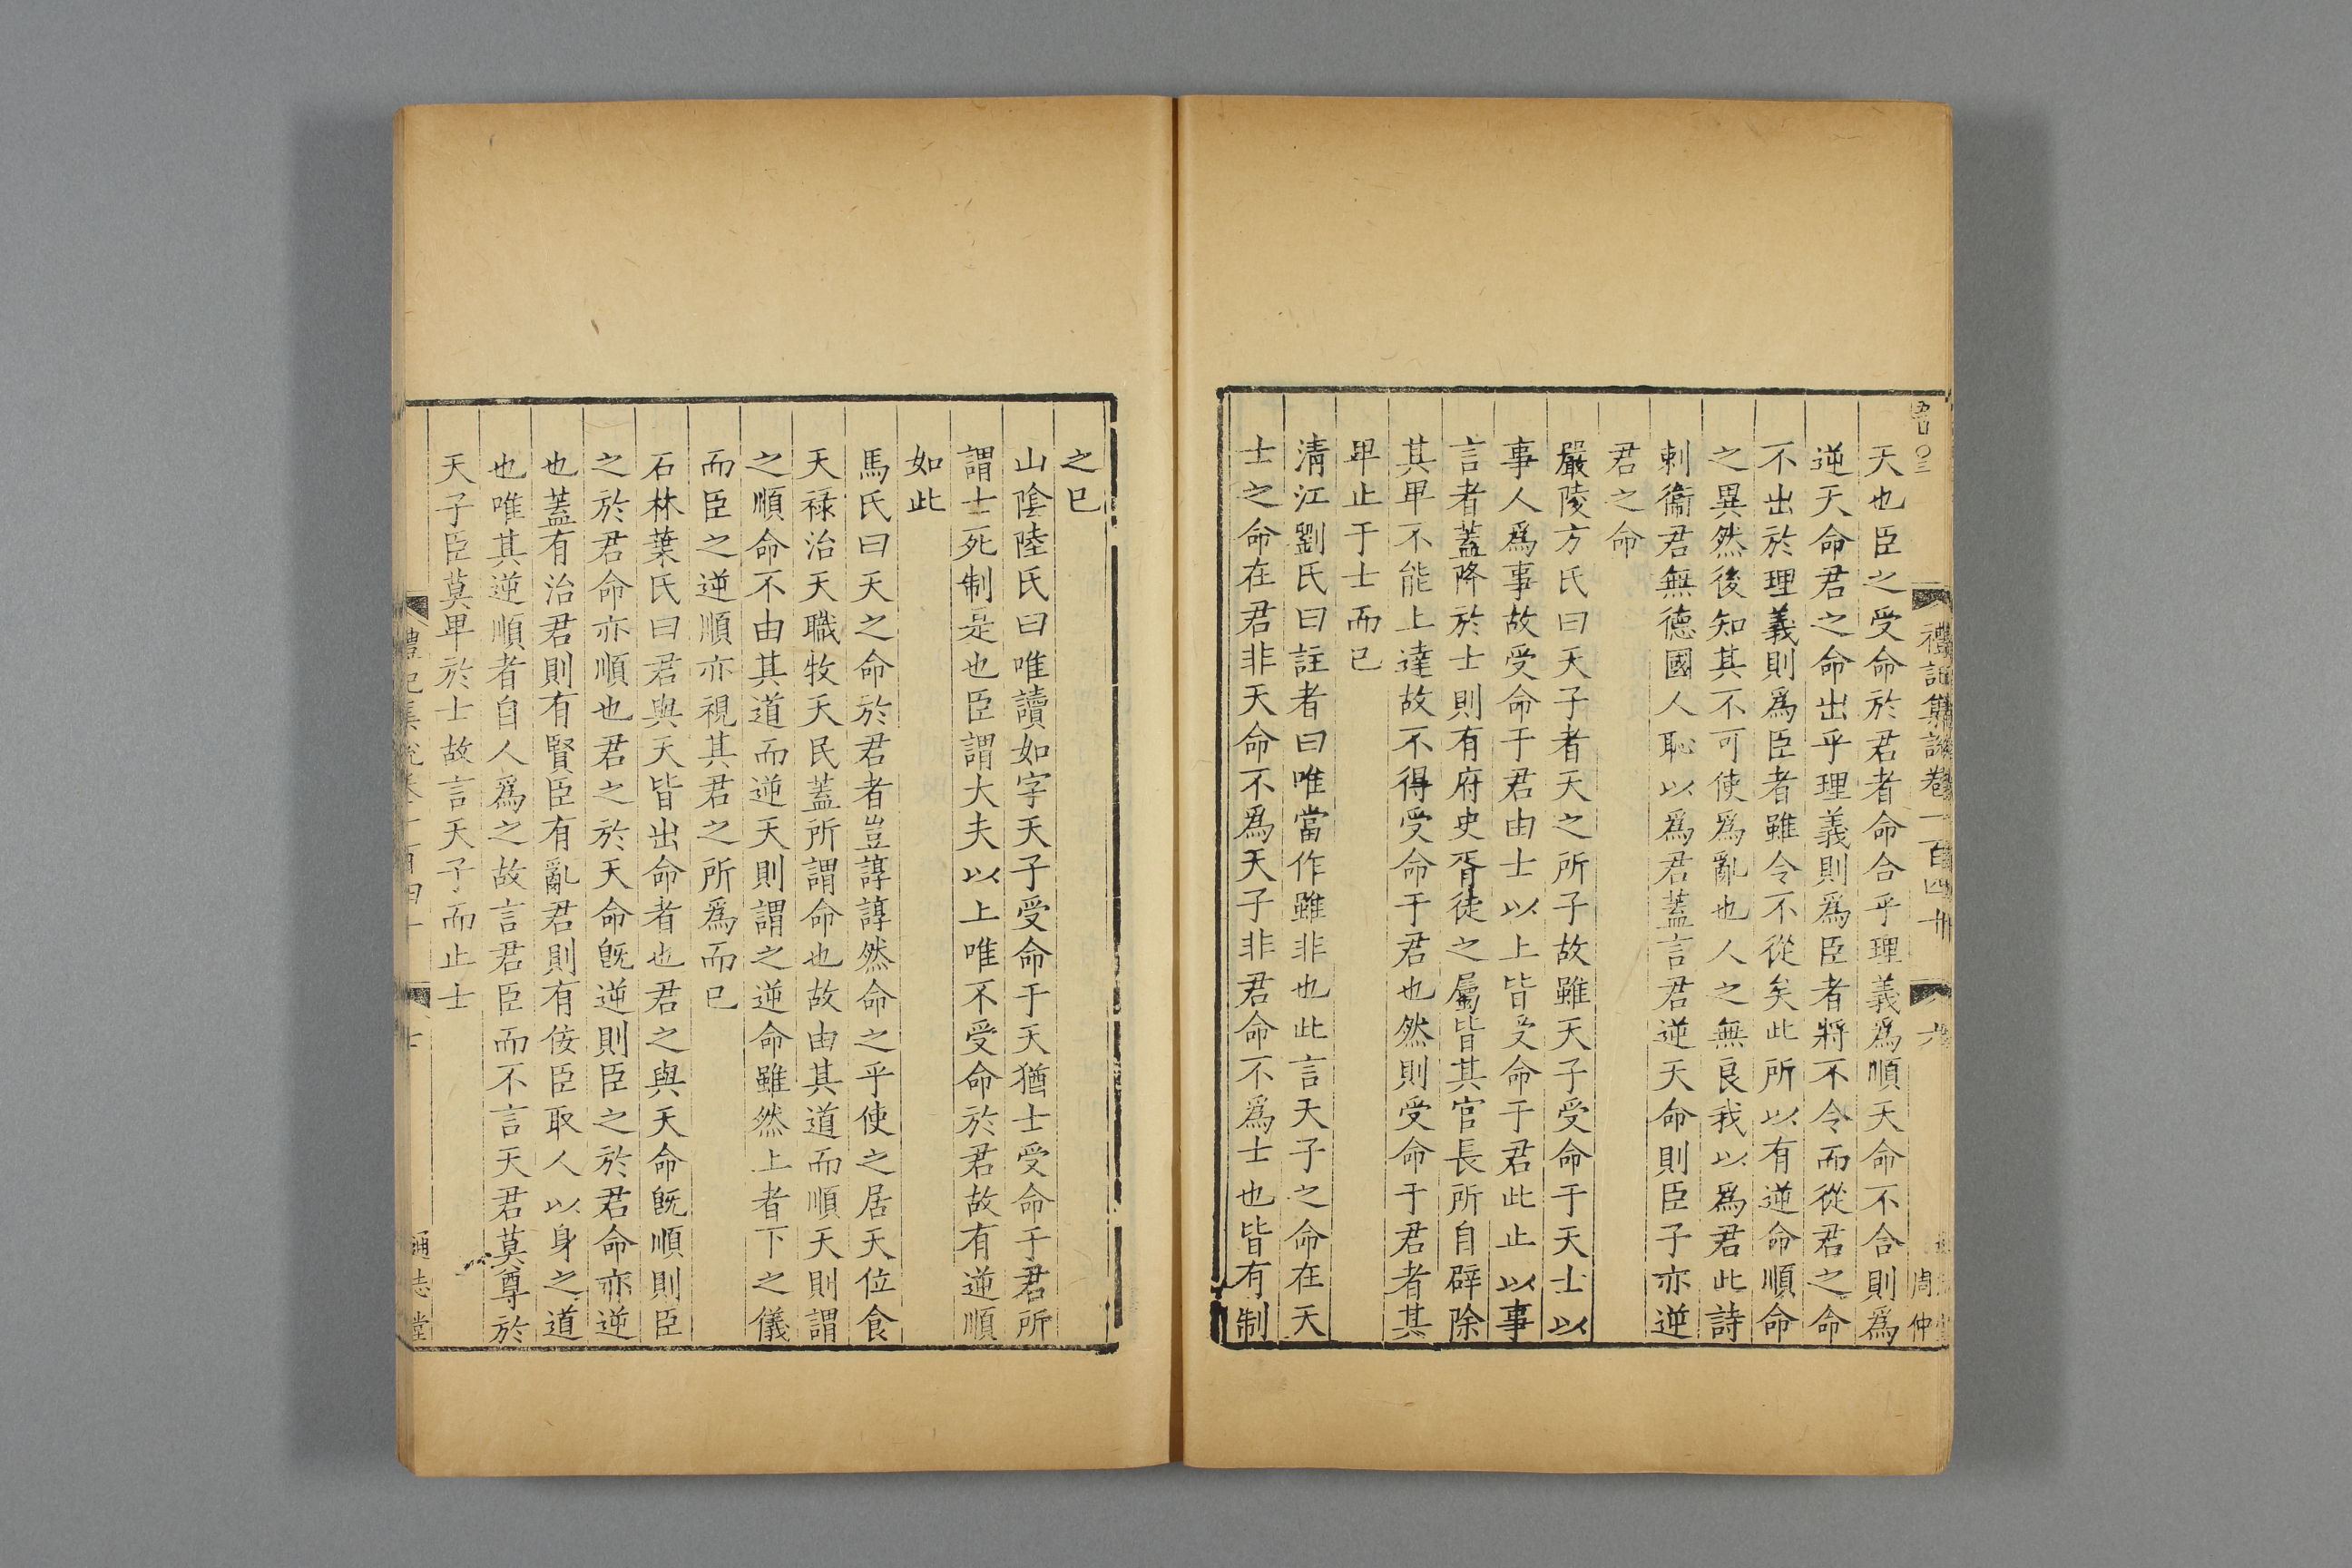 禮記集說卷一百四十
天也臣之受命於君者命合乎理義爲順天命不合則爲
逆天命君之命出乎理義則爲臣者將不令而從君之命
不出於理義則爲臣者雖令不從矣此所以有逆命順命
之異然後知其不可使爲亂也人之無良我以爲君此詩
刺衞君無德國人恥以爲君蓋言君逆天命則臣子亦逆
君之命
嚴陵方氏曰天子者天之所子故雖天子受命于天士以
事人爲事故受命于君由士以上皆受命于君此止以事
言者蓋降於士則有府史胥徒之屬皆其官長所自辟除
其卑不能上達故不得受命于君也然則受命于君者其
卑止于士而已
淸江劉氏曰註者曰唯當作雖非也此言天子之命在天
士之命在君非天命不爲天子非君命不爲士也皆有制
之已
山陰陸氏曰唯讀如字天子受命于天猶士受命于君所
謂士死制是也臣謂大夫以上唯不受命於君故有逆順
如此
馬氏曰天之命於君者豈諄諄然命之乎使之居天位食
天祿治天職牧天民蓋所謂命也故由其道而順天則謂
之順命不由其道而逆天則謂之逆命雖然上者下之儀
而臣之逆順亦視其君之所爲而已
石林葉氏曰君與天皆出命者也君之與天命旣順則臣
之於君命亦順也君之於天命旣逆則臣之於君命亦逆
也蓋有治君則有賢臣有亂君則有佞臣取人以身之道
也唯其逆順者自人爲之故言君臣而不言天君莫尊於
天子臣莫卑於士故言天子而止士
通志堂